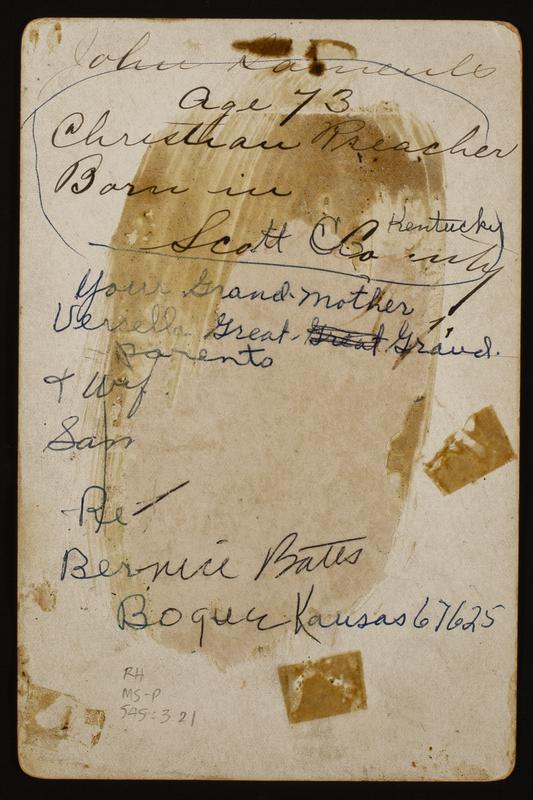 John Samuels
Age 73
Christian Preacher
Born in
Scott County Kentucky
Your Grand-Mother
Versella Great-Great Grand-
- parents
+ Wif
Sam
Re
Bernice Bates
Bogue Kansas 67625
RH
MS-P
545:3.21